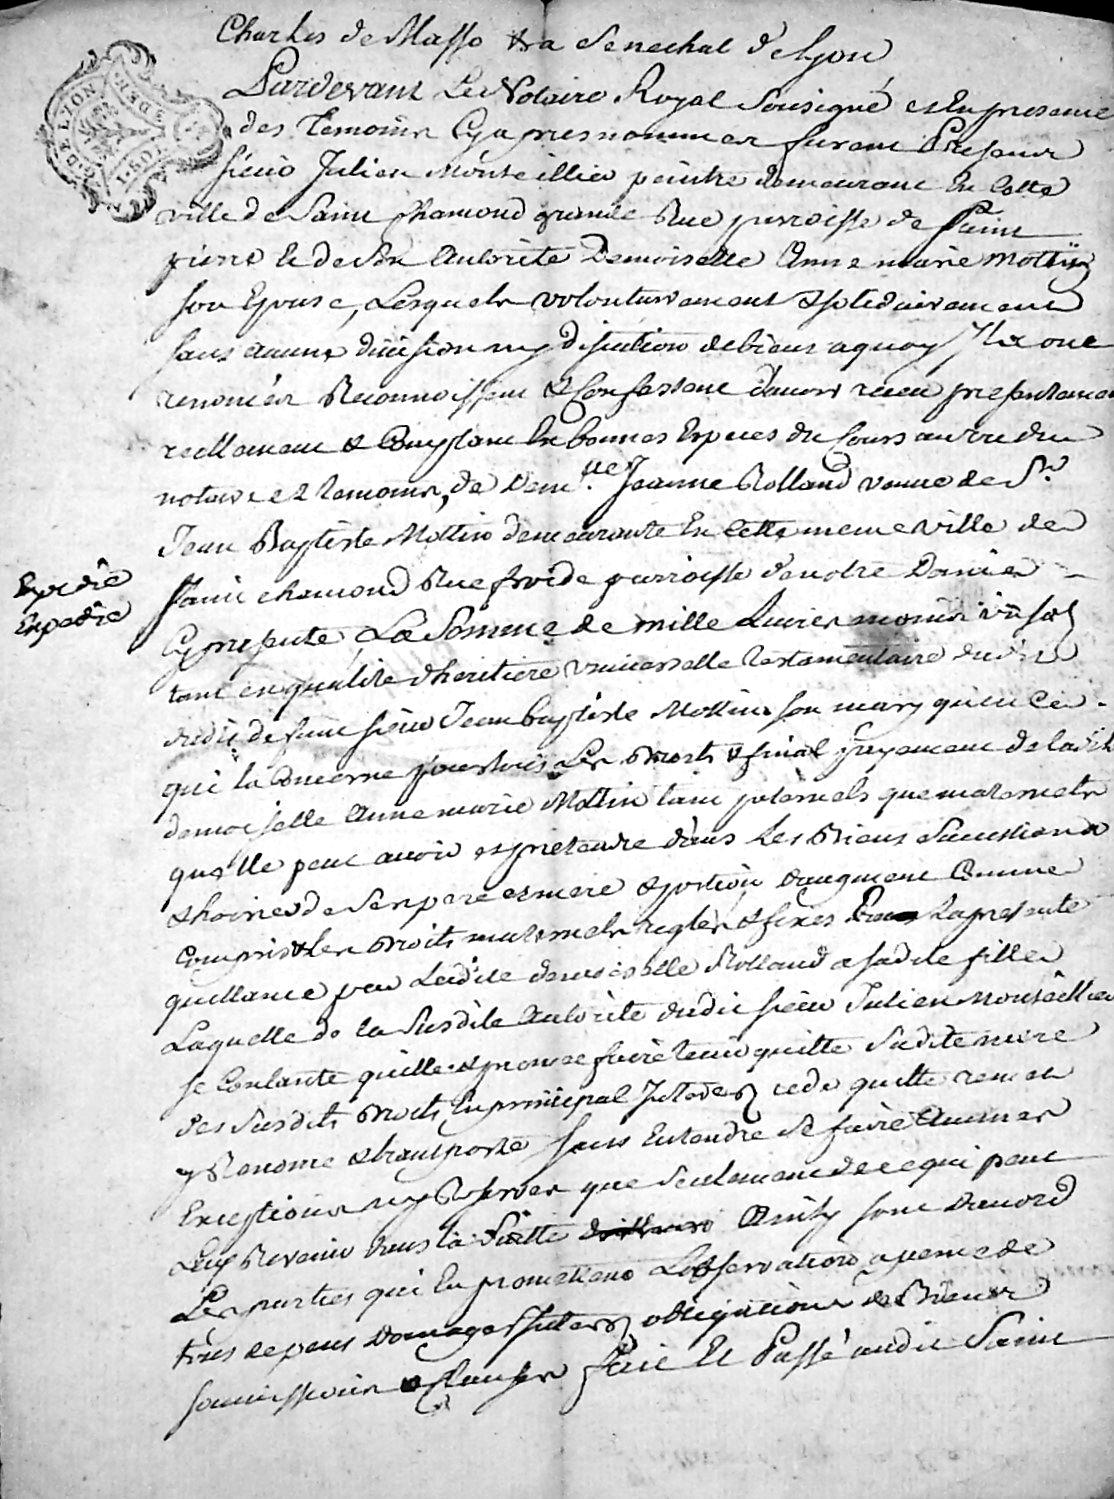 Charles de Masso &ra Senechal de Lyon
Pardevant Le Notaire Royal Sousigné et En presence
des Temoins Cy apres nommes furent Presens
sieur Julien Monteillier peintre demeurant En Cette
ville de Saint Chamond grande Rue parroisse de Saint
pierre & de Son Autorité Demoiselle Anne marie Mottin
son Epouse, Lesquels volontairement & solidairement
sans aucune division ny discution de biens a quoy Ils ont
renoncés Reconnoissent & Confessent d'avoir receu presentement
reellement & Comptant En bonnes Especes du Cours au vu du
notaire et temoins, de Dem.lle Jeanne Rolland veuve de Sr.
Jean Baptiste Mottin demeurante En Cette meme ville de
Saint chamond Rue froide parroisse de notre Dame
Cy presente, La Somme de mille Livres moins
tant en qualité d'heritiere universelle testamentaire
dudit defunt sieur Jean baptiste Mottin son mary qu'en Ce
qui la Concerne pour tous Les Droits & final payement de ladite
demoiselle Anne marie Mottin tant paternels que maternels
qu'elle peut avoir et pretendre dans Les Biens Succession &
hoirie de Ses pere et mere & portion d'augment Comme
Compris & les Droits maternels reglés & fixés La presente
quittance par Ladite demoiselle Rolland a sadite fille
Laquelle de la Susdite Autorité dudit sieur Julien Monteillier
se Contante quitte & promet faire tenir quitte Sadite mere
des Susdits Droits En principal Interets cede quitte remet
y Renonce & transporte sans Entendre Se faire Aucunes
Exceptions ny Reserves que Seulement de ce qui peut
Luy Revenir dans la Suitte Ainsy sont d'accord
Les parties qui En promettent L'observation a peine de
tous depens Domages Interets obligations de Biens
soumissions & Clauses fait Et Passé audit Saint
Expedié
Expedié
G DE LYON